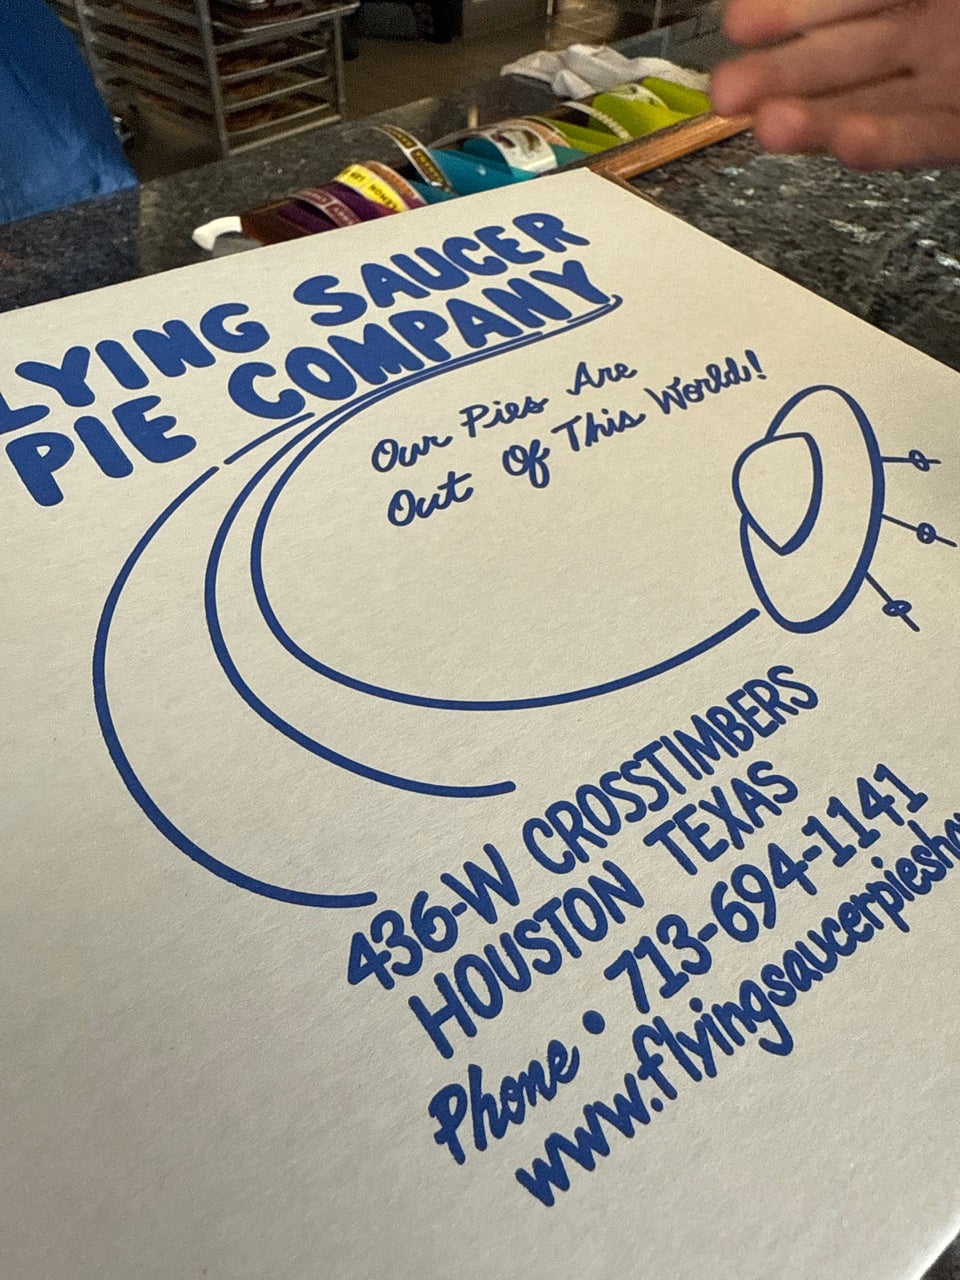 LYING SAUCER
PIE COMPANY
Our Pies Are
Out Of This World!
436-W CROSSTIMBERS
HOUSTON TEXAS
Phone • 713-694-1141
www.flyingsaucerpiesho
LEMON